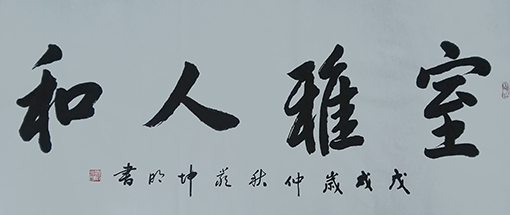 室雅人和
戊戌歲仲秋坤明書